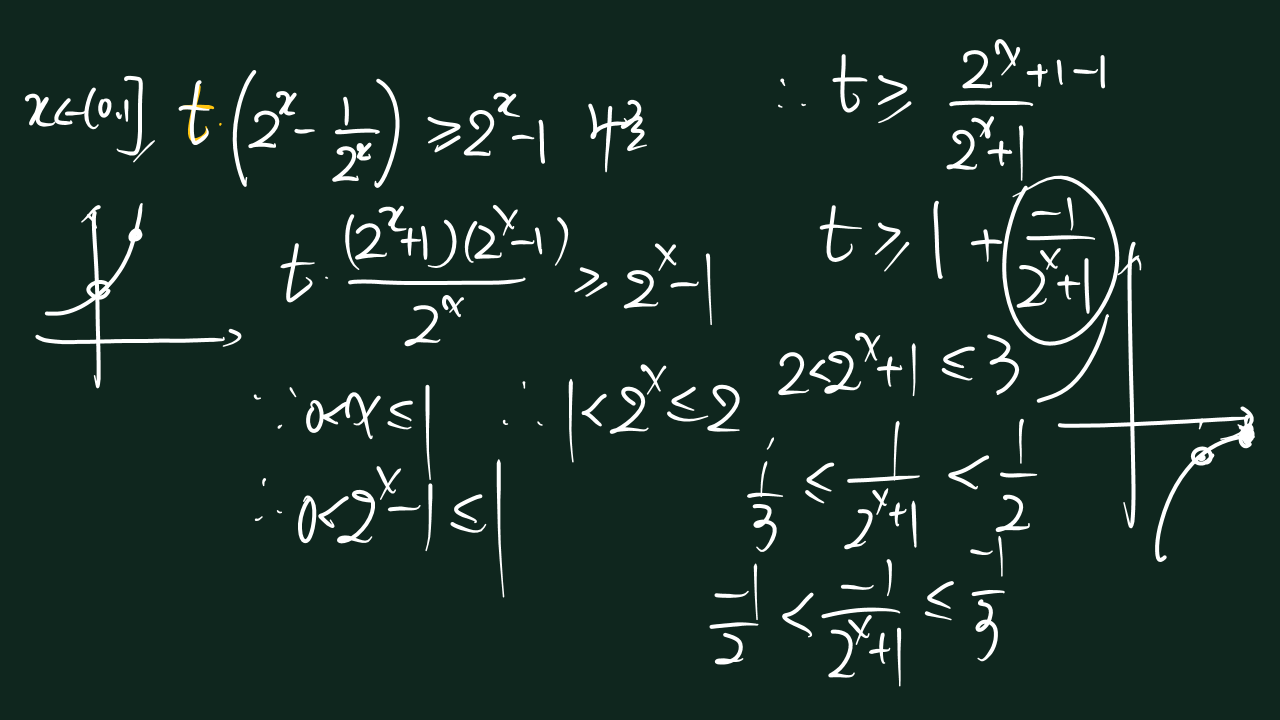 x∈(0,1] t·(2^x - 1/2^x) ≥ 2^x - 1
t·(2^x+1)(2^x-1)/2^x ≥ 2^x - 1
∵ 0<x≤1 ∴ 1<2^x≤2
∴ 0<2^x-1≤1
∴ t ≥ (2^x+1-1)/(2^x+1)
t ≥ 1 + -1/(2^x+1)
2<2^x+1≤3
1/3 ≤ 1/(2^x+1) < 1/2
-1/2 < -1/(2^x+1) ≤ -1/3